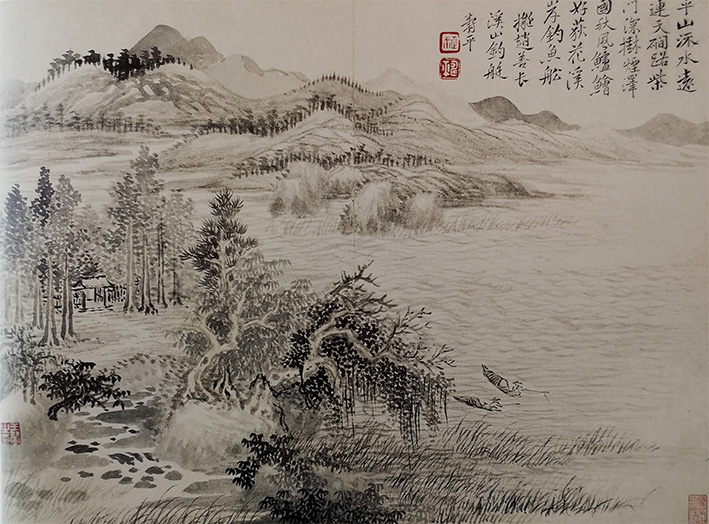 平山水遠
連天磵路柴
門深樹煙澤
國秋風鱸鱠
好荻花溪
岸釣魚船
擬趙善長
溪山釣艇
壽平